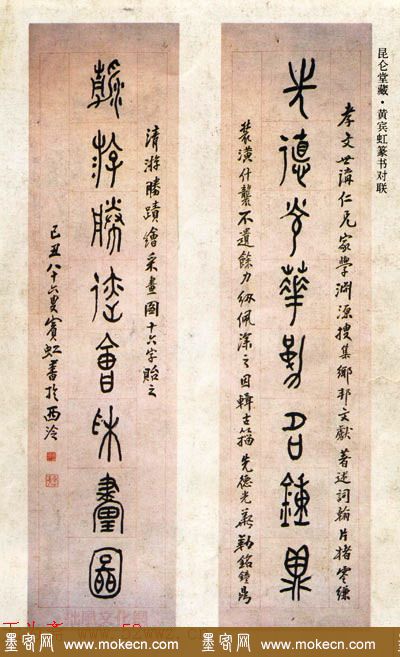 昆仑堂藏·黄宾虹篆书对联
孝文世讲仁兄家學渊源搜集鄉邦文獻著述詞翰片楮零缣
先德光華勒名鍾鼎
裝潢什襲不遺餘力纫佩深之因輯古籀先德光華勒銘鐘鼎
清游勝蹟繪采畫圖十六字貽之
清游勝迹會采畫圖
己丑八十六叟賓虹書於西泠
墨客网 www.mokecn.com 墨客网 www.mokecn.com